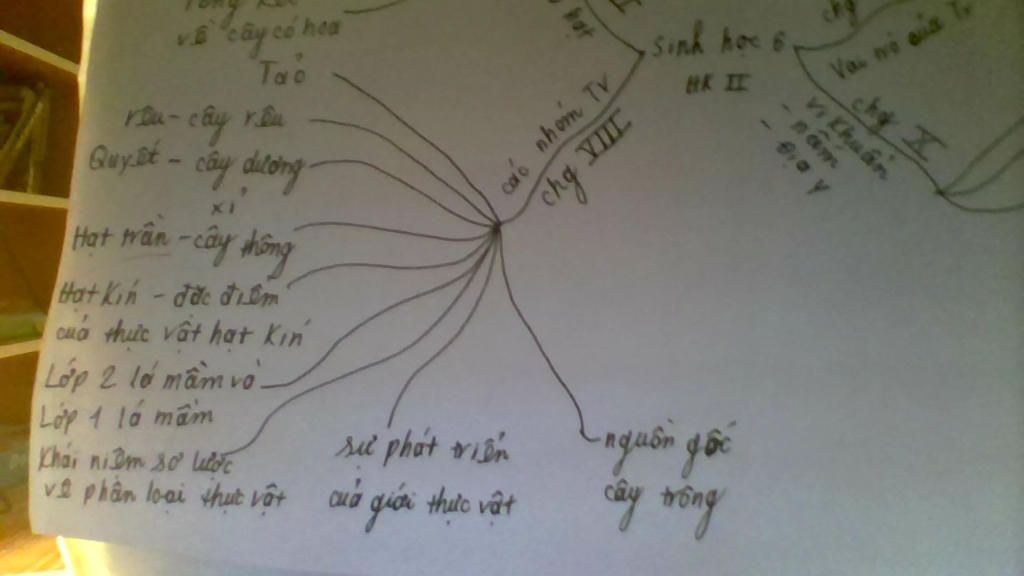 Tổng kết
về cây có hoa
Tảo
rêu - cây rêu
Quyết - cây dương
xỉ
Hạt trần - cây thông
Hạt Kín - đặc điểm
của thực vật hạt kín
Lớp 2 lá mầm và
Lớp 1 lá mầm
Khái niệm sơ lược
về phân loại thực vật
sự phát triển
của giới thực vật
nguồn gốc
cây trồng
các nhóm TV
chg VIII
hạt
sinh học 6
HK II
chg
Vai trò của TV
chg X
- vi khuẩn
- nấm
- địa y